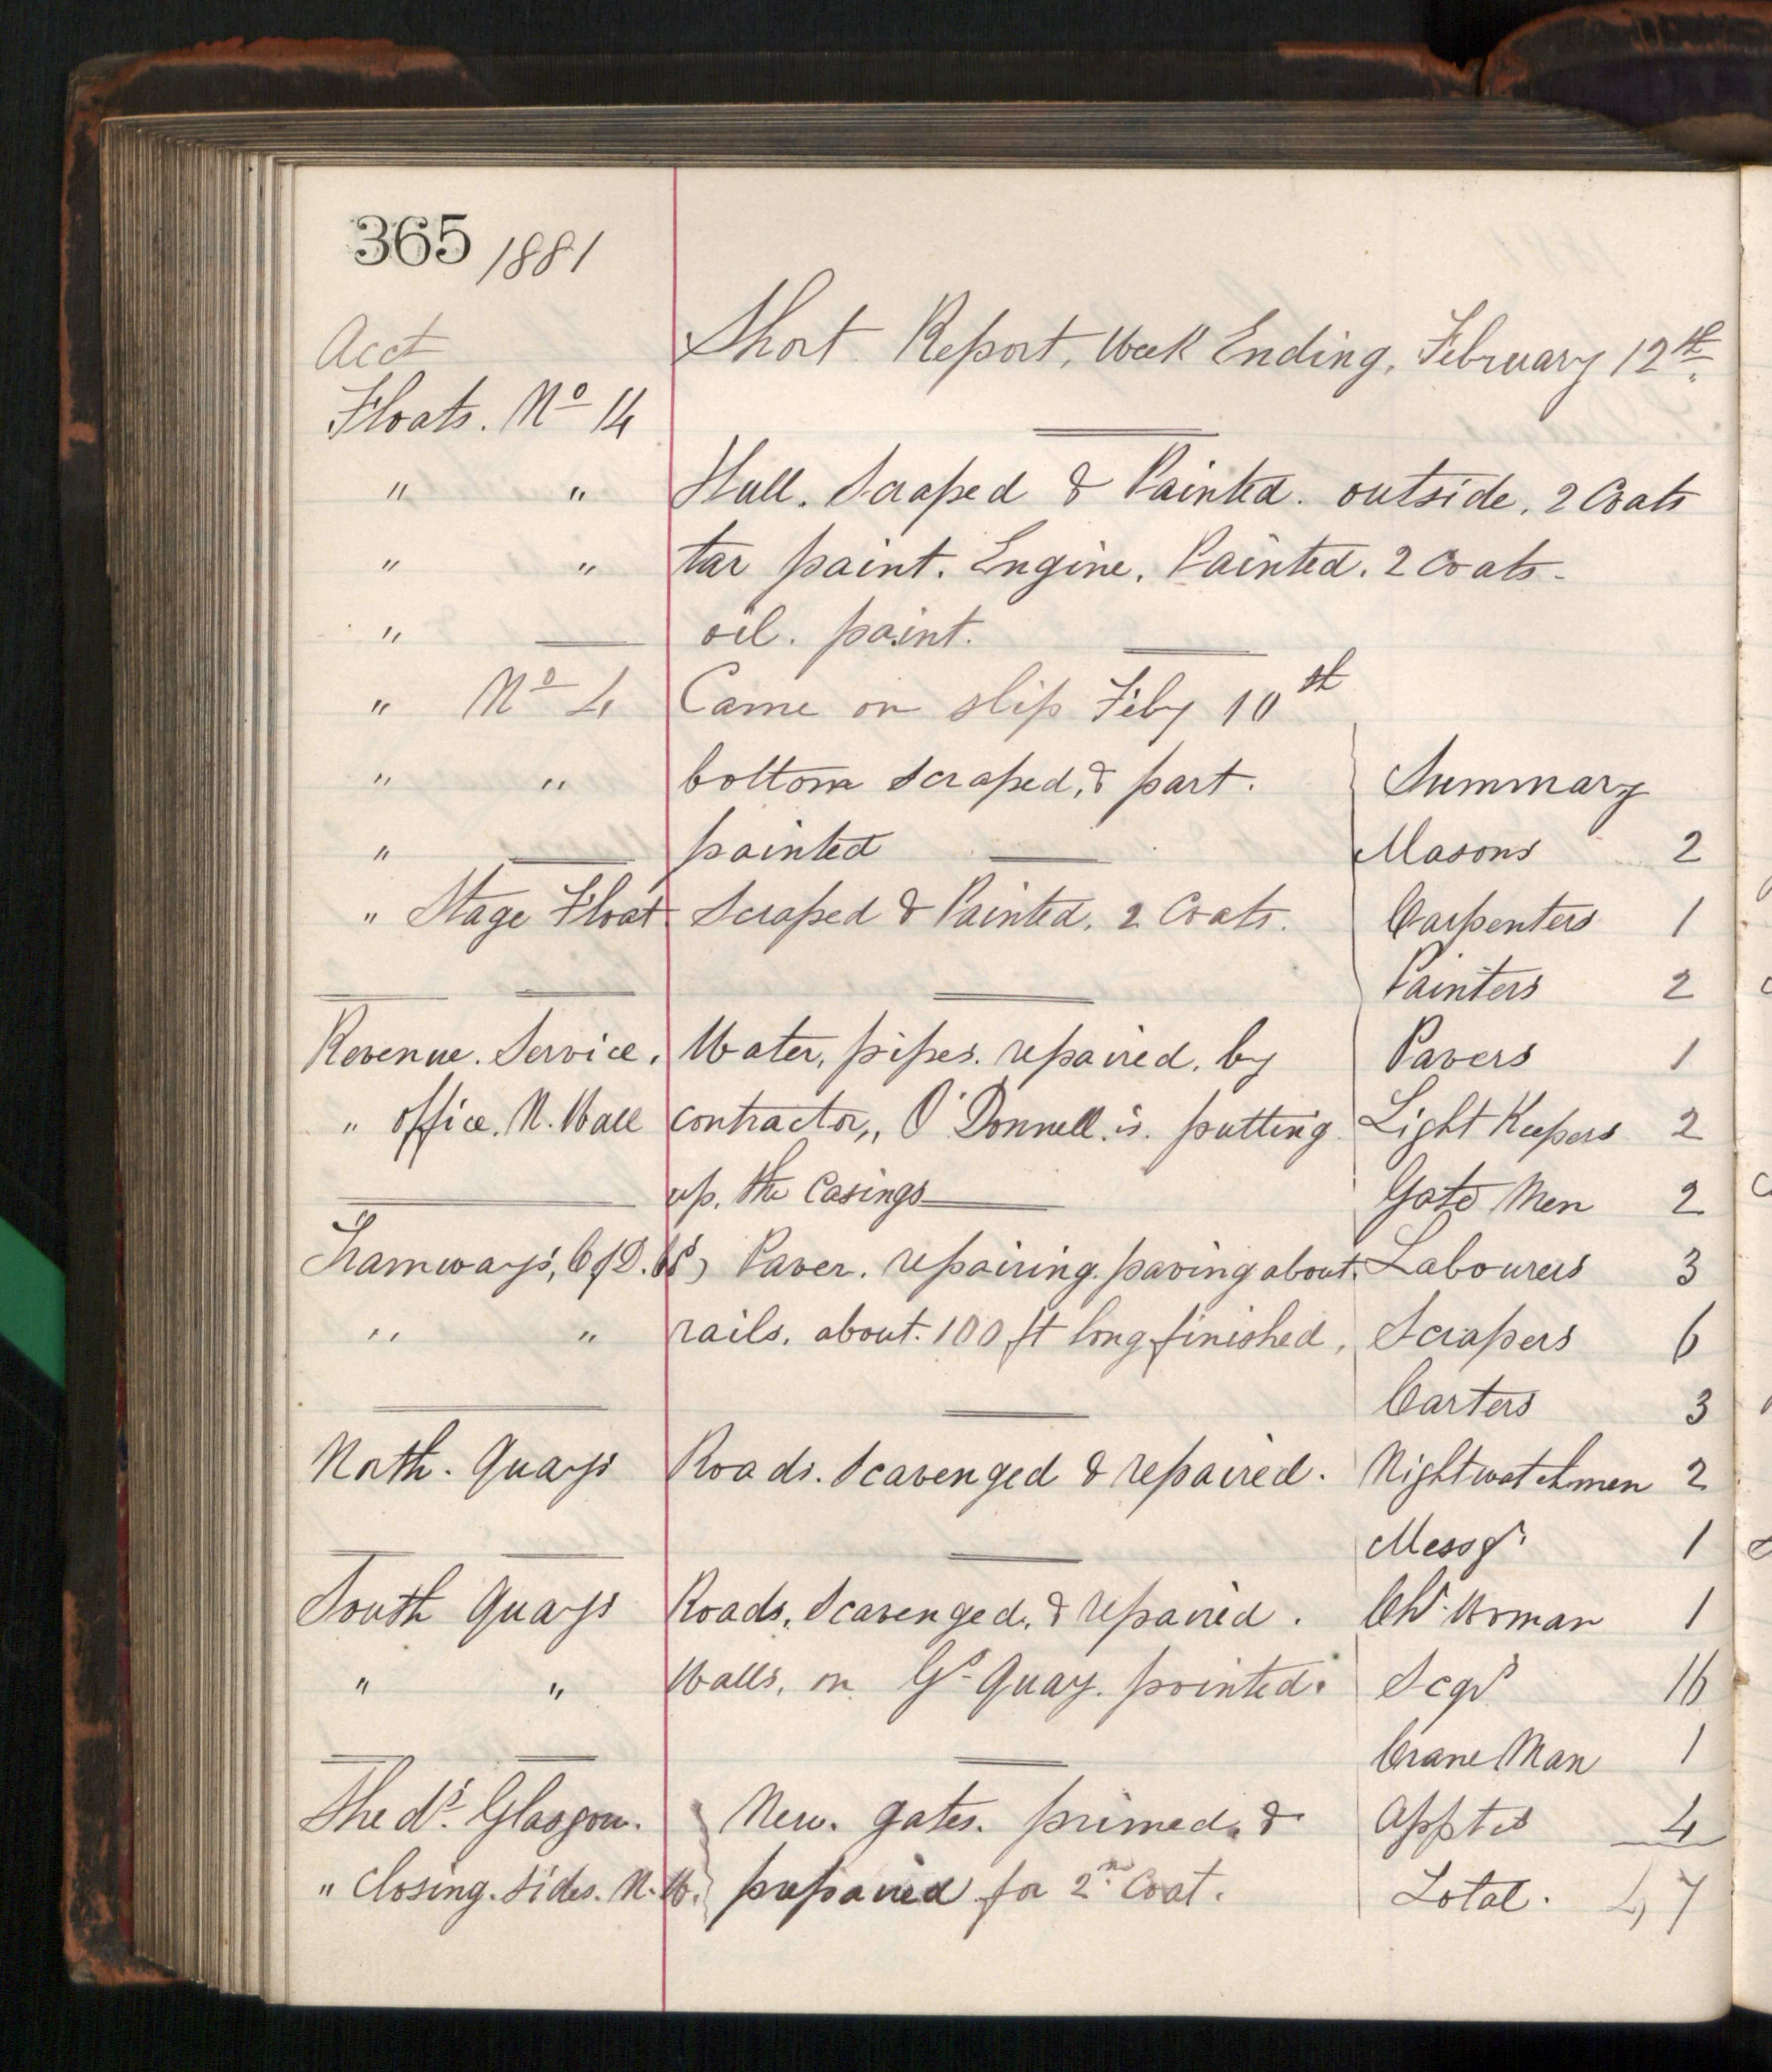 365 1881
Acct Short Report, Week Ending, February 12th
Floats. No 14
" " Hull. Scraped & Painted. outside, 2 Coats
" " tar paint. Engine. Painted. 2 Coats
" oil. paint.
" No 4 Came on slip Feby 10th
" " bottom scraped, & part. Summary
" painted Masons 2
" Stage Float Scraped & Painted. 2 Coats. Carpenters 1
Painters 2
Revenue. Service. Water, pipes. repaired. by Pavers 1
" office. N. Wall contractor,, O'Donnell. is. putting Light Keepers 2
up. the Casings Gate Men 2
Tramways, Paver. repairing. paving about. Labourers 3
" " rails. about. 100 ft long finished, Scrapers 6
Carters 3
North. Quays Roads. Scavenged & repaired. Nightwatchmen 2
Messgr 1
South Quays Roads. Scavenged. & repaired. Chr. Woman 1
" " Walls, on Gs Quay. pointed. Scgrs 16
Crane Man 1
Sheds. Glasgow. New. gates. primed. & Apptes 4
" Closing. sides. N. W. prepaired for 2nd Coat. Total. 47